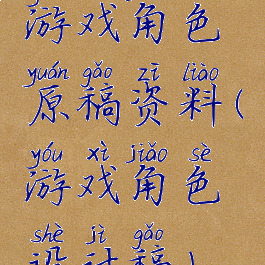 游戏角色
yuán gǎo zī liào
原稿资料(
yóu xì jiǎo sè
游戏角色
shè jì gǎo
设计稿)